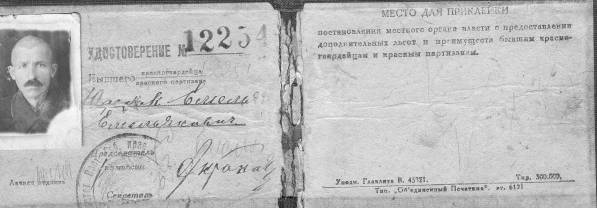 УДОСТОВЕРЕНИЕ № 12254
Бывшего красногвардейца
красного партизана
Емель
Емельянович
Председатель
комиссии
Секретарь
Личная подпись
МЕСТО ДЛЯ ПРИКЛЕЙКИ
постановления местного органа власти о предоставлении
дополнительных льгот и преимуществ бывшим красно-
гвардейцам и красным партизанам.
Уполн. Главлита В. 43721. Тир. 300.000.
Тип. „Об'единенный Печатник“. зт. 6121